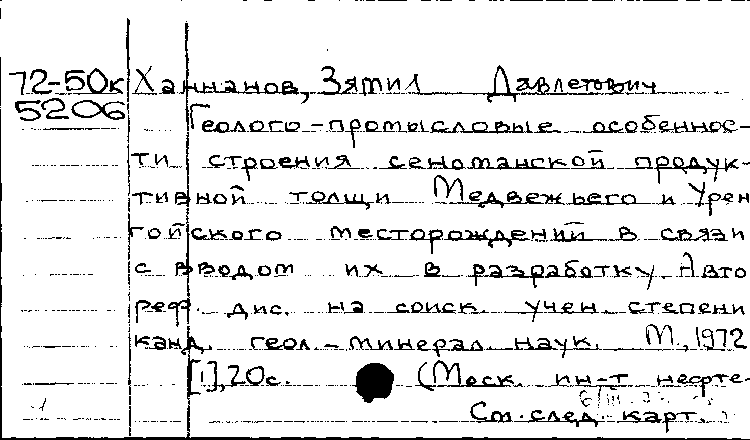 72-50к Ханнанов, Зятил Давлетович
5206 Геолого-промысловые особеннос-
ти строения сеноманской продук-
тивной толщи Медвежьего и Урен
гойского месторождений в связи
с вводом их в разработку. Авто
реф. дис. на соиск. учен. степени
канд. геол.-минерал. наук. М., 1972
[1], 20с. (Моск. ин-т нефте-
См. след. карт.